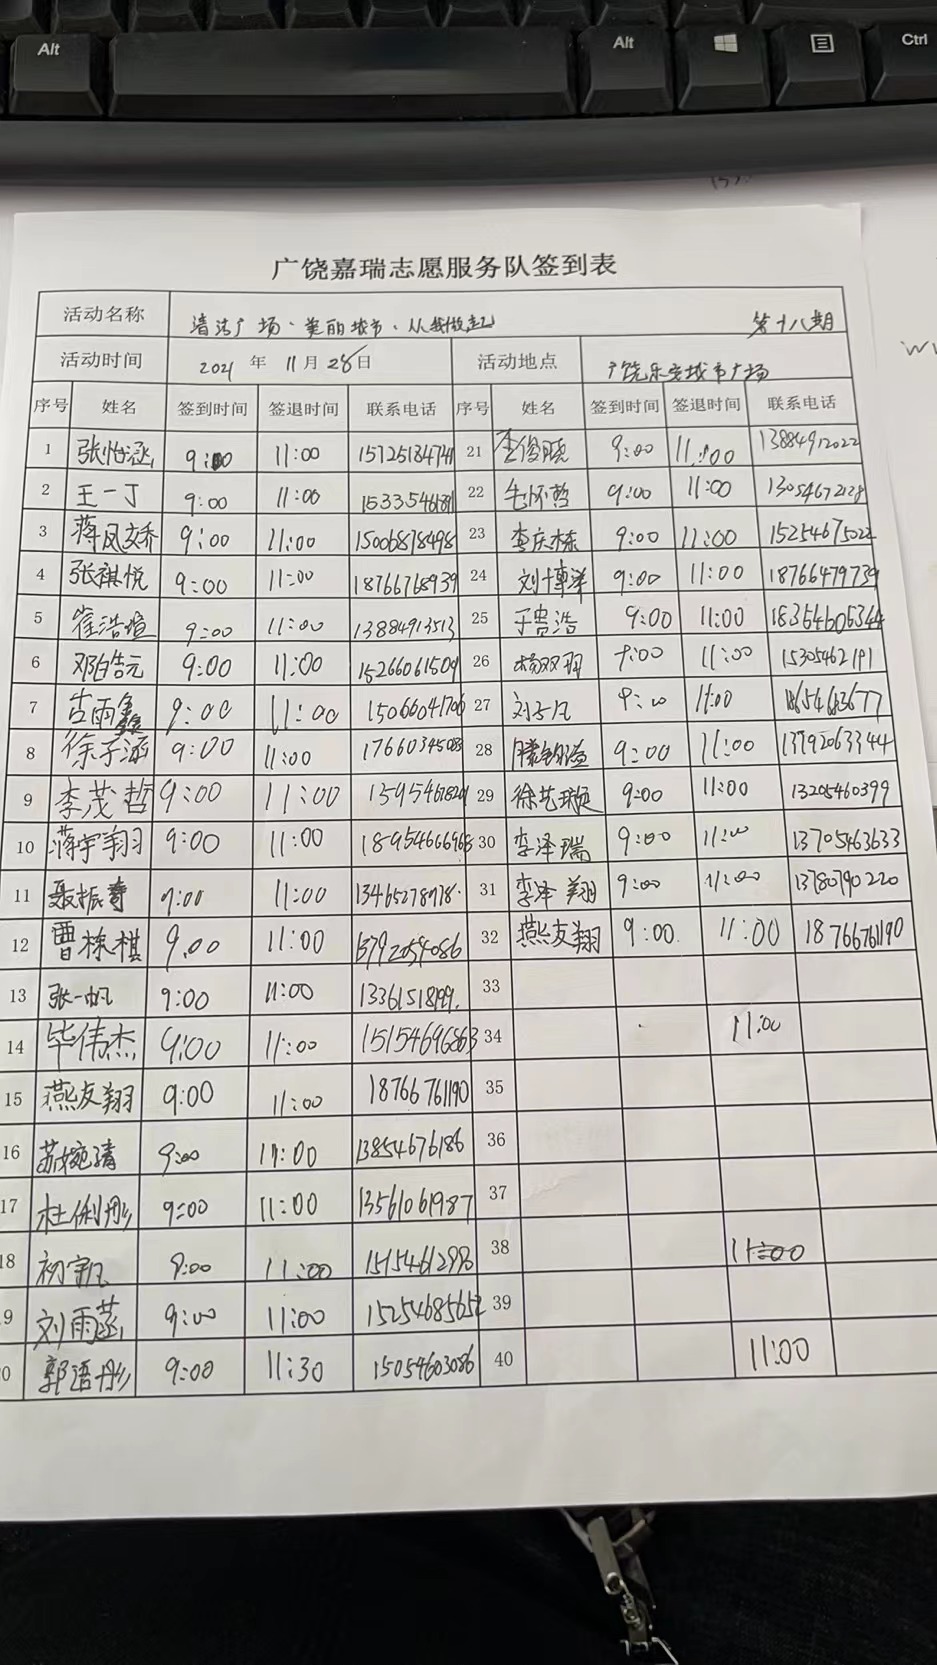 Alt
Alt
Ctrl
广饶嘉瑞志愿服务队签到表
活动名称 清洁广场·美丽城市·从我做起 第十八期
活动时间 2021 年 11 月 28 日 活动地点 广饶乐安城市广场
序号 姓名 签到时间 签退时间 联系电话 序号 姓名 签到时间 签退时间 联系电话
1 张怡涵 9:00 11:00 21 9:00 11:00 13884912022
2 王一丁 9:00 11:00 22 9:00 11:00 13054672128
3 蒋凤娇 9:00 11:00 15006878498 23 李庆栋 9:00 11:00 15254675022
4 张祺悦 9:00 11:00 18766768939 24 刘博洋 9:00 11:00 18766479739
5 崔浩瑄 9:00 11:00 13884913513 25 于贵浩 9:00 11:00 18364606344
6 邓皓元 9:00 11:00 15266061509 26 杨双羽 9:00 11:00 15305462191
7 古雨鑫 9:00 11:00 15066041706 27 刘子凡 9:00 11:00 18654683677
8 徐子涵 9:00 11:00 17660345083 28 9:00 11:00 13792063344
9 李茂哲 9:00 11:00 29 徐艺璇 9:00 11:00 13205460399
10 蒋宇翔 9:00 11:00 18954666968 30 李泽瑞 9:00 11:00 13705463633
11 聂振寿 9:00 11:00 13465278978 31 李泽翔 9:00 11:00 13780790220
12 曹栋棋 9:00 11:00 13792054086 32 燕友翔 9:00 11:00 18766761190
13 张一帆 9:00 11:00 13361518199 33
14 毕伟杰 9:00 11:00 15154696863 34 11:00
15 燕友翔 9:00 11:00 18766761190 35
16 苏婉清 9:00 11:00 13854676186 36
17 杜俐彤 9:00 11:00 13561061987 37
18 初宇凡 9:00 11:00 15154612993 38 11:00
9 刘雨菡 9:00 11:00 15254685652 39
0 郭语彤 9:00 11:30 15054603086 40 11:00